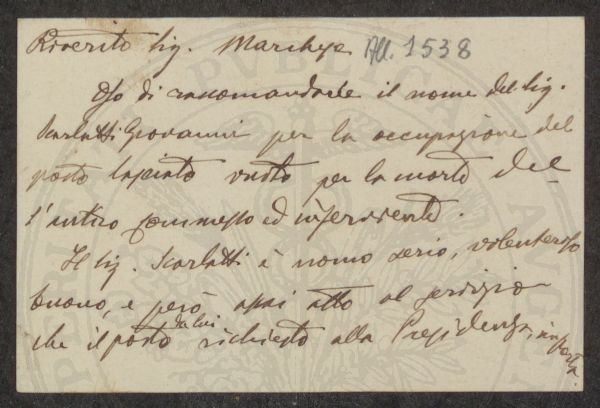 Riverito Sig. Marchese All. 1538
Oso di raccomandarle il nome del Sig.
Scarlatti Giovanni per la occupazione del
posto lasciato vuoto per la morte del-
l'antico commesso ed inserviente.
Il Sig. Scarlatti è uomo serio, volenteroso
buono, e però assai atto al servizio
che il posto da lui richiesto alla Presidenza, importa.
PVBLICA